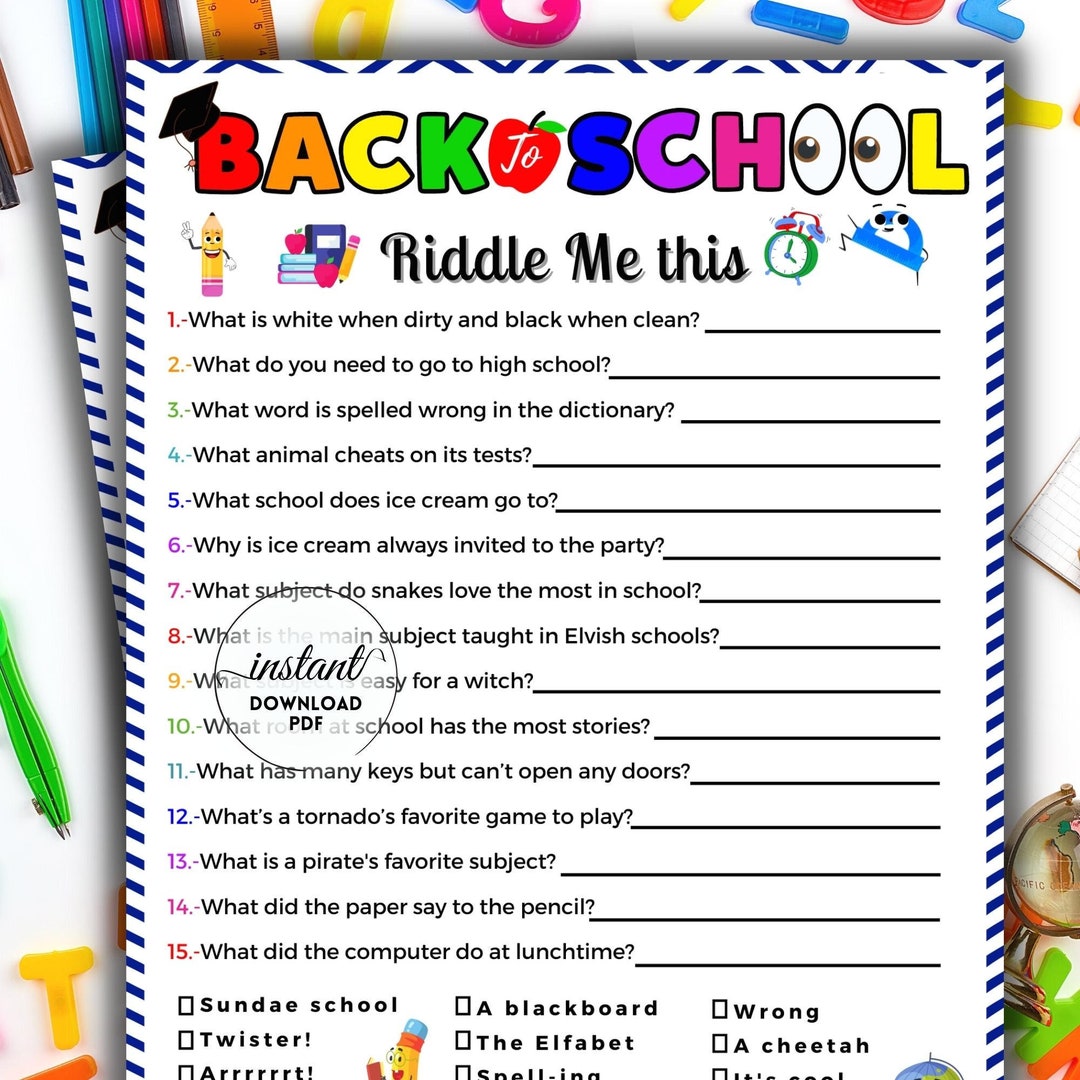 BACK To SCHOOL
Riddle Me this
1.-What is white when dirty and black when clean?
2.-What do you need to go to high school?
3.-What word is spelled wrong in the dictionary?
4.-What animal cheats on its tests?
5.-What school does ice cream go to?
6.-Why is ice cream always invited to the party?
7.-What subject do snakes love the most in school?
8.-What is the main subject taught in Elvish schools?
9.-What subject is easy for a witch?
10.-What room at school has the most stories?
11.-What has many keys but can't open any doors?
12.-What's a tornado's favorite game to play?
13.-What is a pirate's favorite subject?
14.-What did the paper say to the pencil?
15.-What did the computer do at lunchtime?
instant
DOWNLOAD
PDF
Sundae school
A blackboard
Wrong
Twister!
The Elfabet
A cheetah
Arrrrrrt!
Spell-ing
It's cool